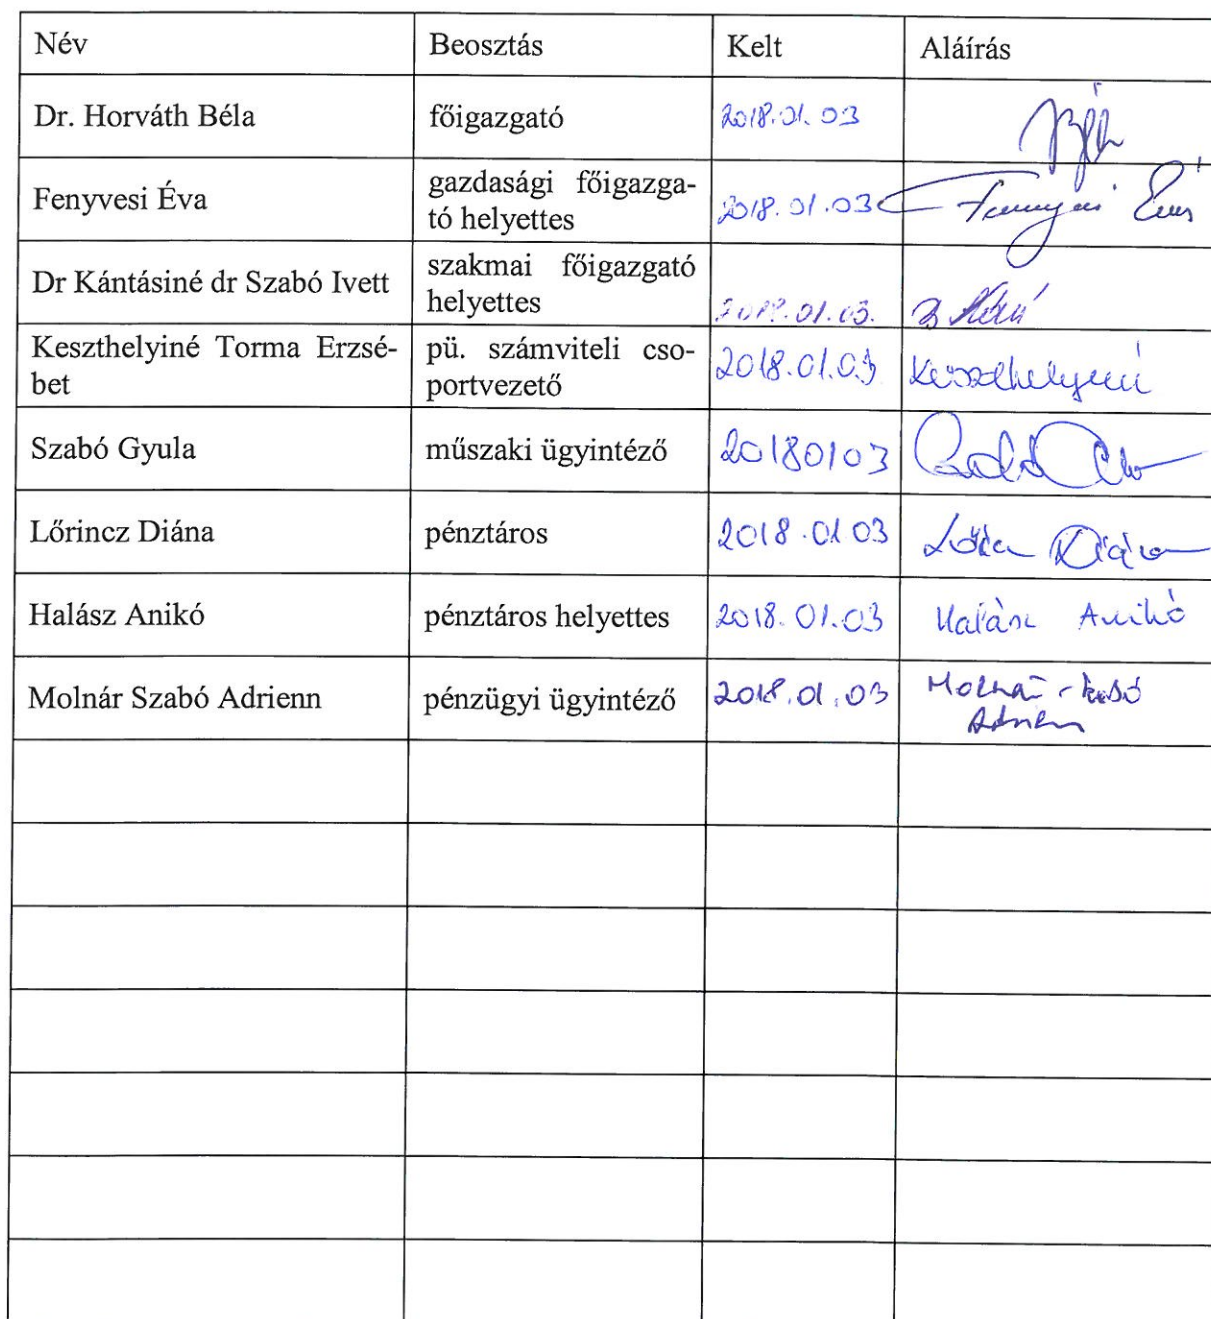 Név Beosztás Kelt Aláírás
Dr. Horváth Béla főigazgató 2018.01.03
Fenyvesi Éva gazdasági főigazga-
tó helyettes 2018.01.03 Fenyvesi Éva
Dr Kántásiné dr Szabó Ivett szakmai főigazgató
helyettes 2018.01.03.
Keszthelyiné Torma Erzsé-
bet pü. számviteli cso-
portvezető 2018.01.03 Keszthelyiné
Szabó Gyula műszaki ügyintéző 20180103
Lőrincz Diána pénztáros 2018.01.03 Diána
Halász Anikó pénztáros helyettes 2018.01.03 Halász Anikó
Molnár Szabó Adrienn pénzügyi ügyintéző 2018.01.03 Molnár-Szabó
Adrienn